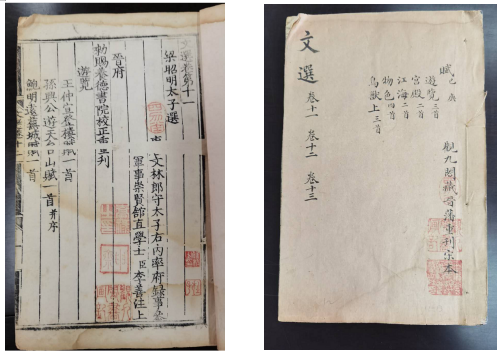 文選卷第十一
梁昭明太子選
文林郎守太子右內率府錄事參
軍事崇賢館直學士臣李善注上
晉府
勅賜養德書院校正重刊
遊覽
王仲宣登樓賦一首
孫興公遊天台山賦一首并序
鮑明遠蕪城賦一首
文選 卷十一 卷十二 卷十三
賦己
遊覽三首
宮殿二首
江海二首
物色四首
鳥獸上三首
觀九閣藏晉藩重刊宋本